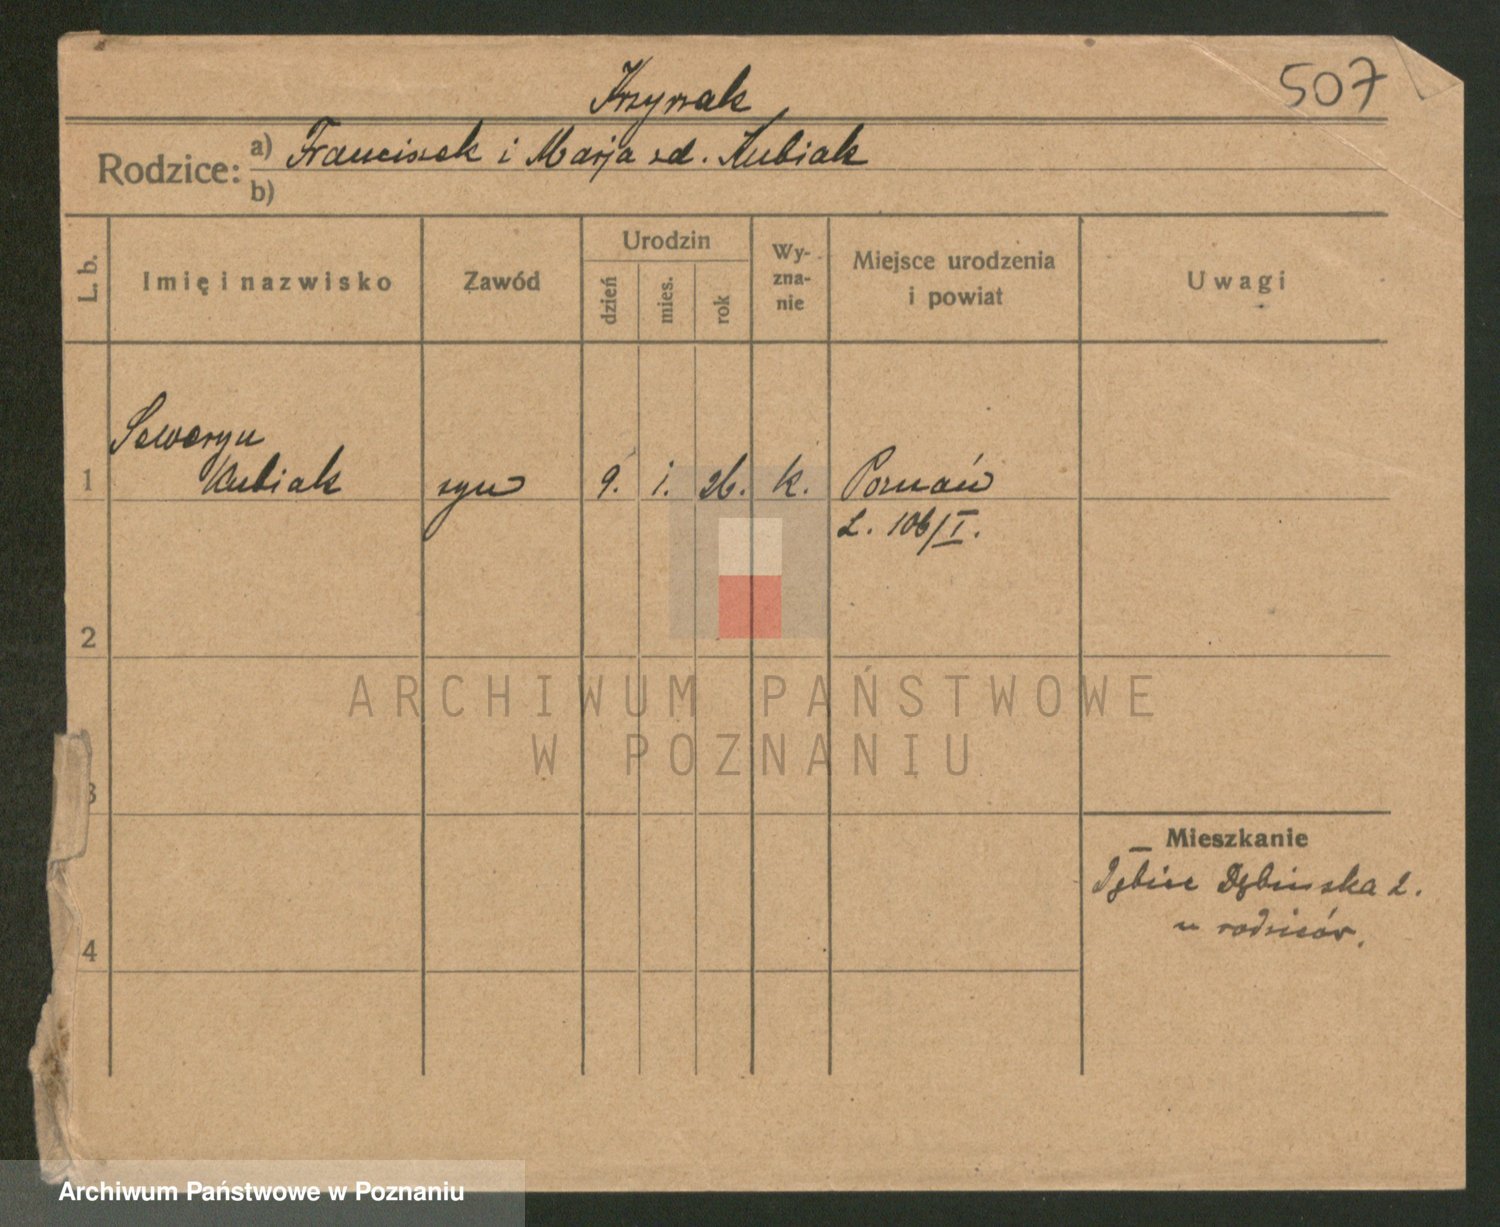 507
Krzyżak
Rodzice: a) Franciszek i Marja zd. Kubiak
b)
L. b.
Imię i nazwisko
Zawód
Urodzin
dzień
mies.
rok
Wy-
zna-
nie
Miejsce urodzenia
i powiat
Uwagi
Seweryn
1 Kubiak syn 9. 1. 26. k. Poznań
L. 106/I.
2
ARCHIWUM PAŃSTWOWE
W POZNANIU
3
Mieszkanie
Dębiec Dębińska 2.
u rodziców.
4
Archiwum Państwowe w Poznaniu